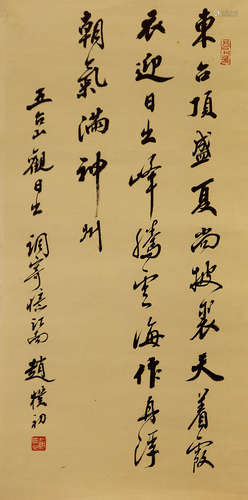 東台頂盛夏尚披裘天着霞
衣迎日出峰騰雲海作舟浮
朝氣滿神州
五台山觀日出 調寄憶江南 趙樸初